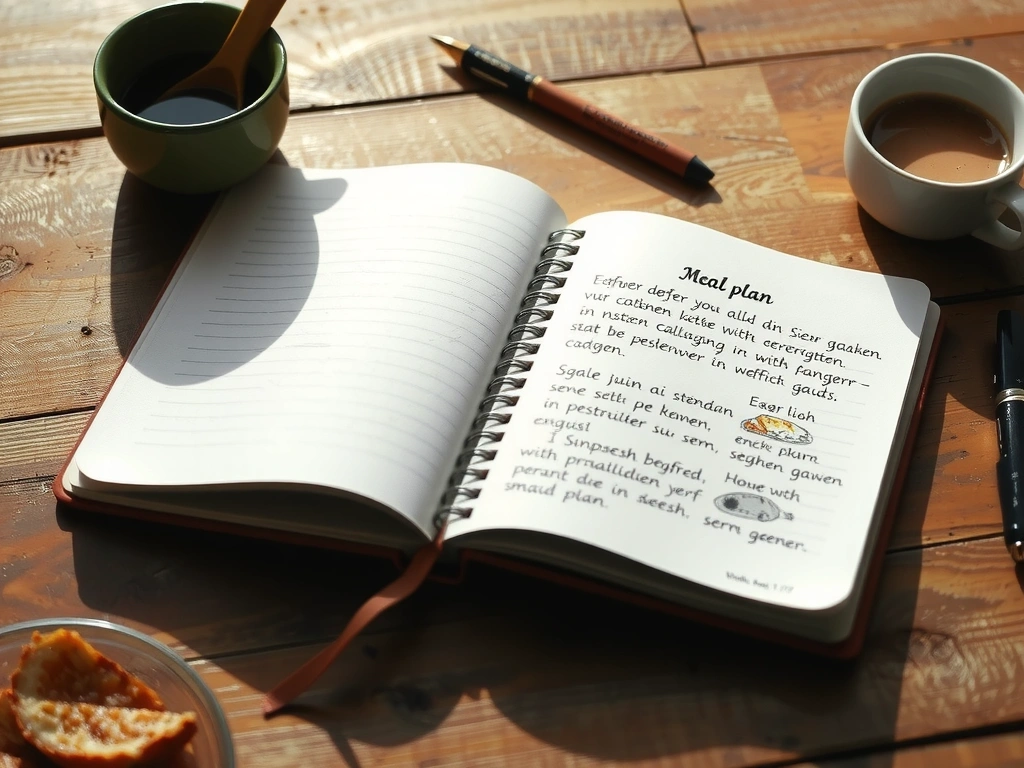 Meal plan
Eerfwer defer you alld din Sierr gaaken.
vur catknen kettse with cererigtten.
in nstten callurging in with fangerr–
stat be pestenver in weffich gauds.
cadgen.
Sgale juin ai stendan
sene setti pe kemen,
in pestruller su sem,
engust
I Sinpsesh begfred,
with pmallidien yerf
perant die in seesh.
smaud plan.
Exer lioh
encke pkum
seghen gawen
Houe wth
serm geener.